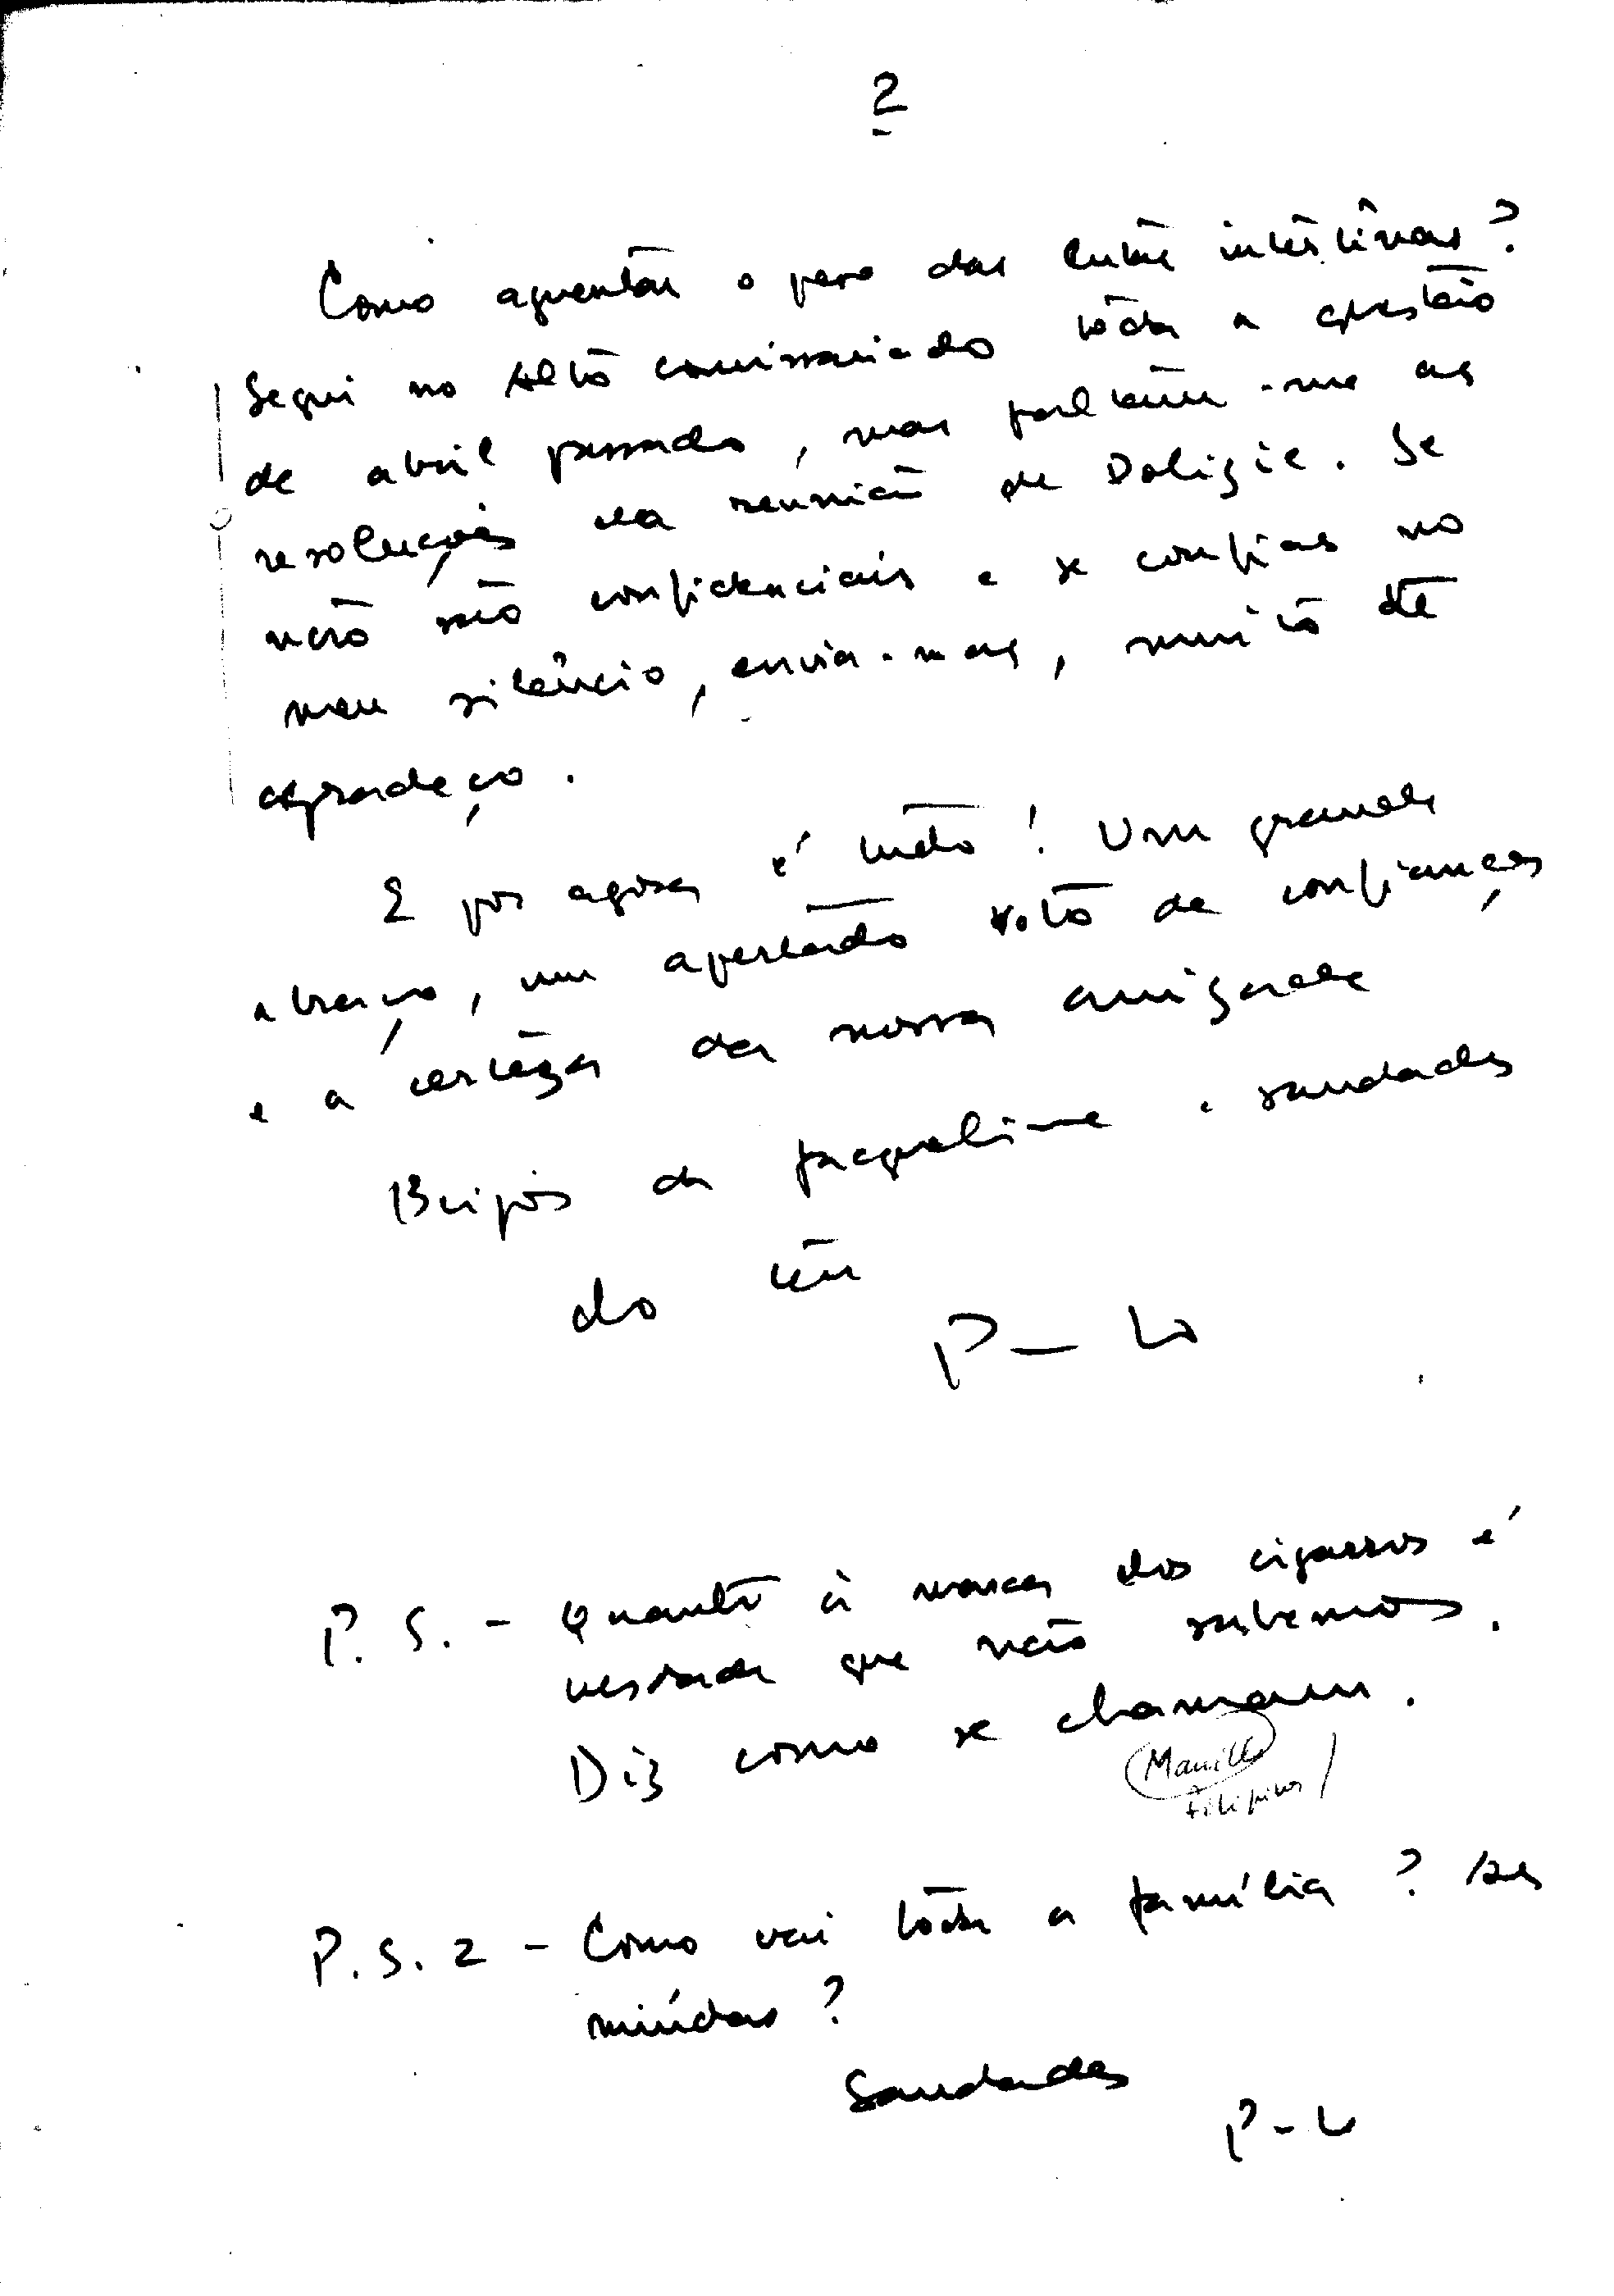 2
Como aguentar o peso das lutas intestinas?
Segui no Alto comissariado tôda a questão
de abril passado, mas faltam-me as
resoluções da reunião de Dolisie. Se
não são confidenciais e se confias no
meu silêncio, envia-mas, muito te
agradeço.
E por agora é tudo! Um grande
abraço, um apertado voto de confiança
e a certeza da nossa amizade
Beijos da Jacqueline e saudades
do teu
P-L
P.S. - Quanto à marca dos cigarros é
verdade que não sabemos.
Diz como se chamam.
Manilla
Filipinos /
P.S. 2 - Como vai tôda a família? As
miúdas?
Saudades
P-L